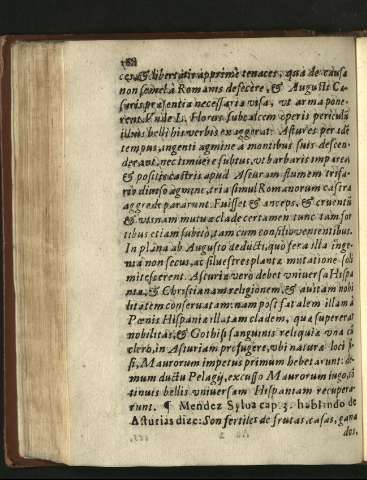 ces, & libertatis apprimè tenaces, qua de causa
non semel à Romanis defecere, & Augusti Cæ-
saris præsentia necessaria visa, vt arma pone-
rent. Vnde L. Florus subcalcem operis periculũ
illius belli his verbis exaggerat: Astures per idẽ
tempus, ingenti agmine a montibus suis descen-
derant, nec timuere subitus, vt barbaris impetus
& positis castris apud Asturam flumem trifa-
rio diuiso agmine, tria simul Romanorum castra
aggredi pararunt. Fuisset & anceps, & cruentũ
& vtinam mutua clade certamen tunc tam for
tibus etiam subitò, tam cum consilio venientibus.
In plana ab Augusto deducti, quo fera illa inge-
nia non secus, ac siluestres plantæ mutatione soli
mitescerent. Asturiæ verò debet vniuersa Hispa
nia, & Christianam religionem, & auitam nobi
litatem conseruatam: nam post fatalem illam à
Pœnis Hispaniæ illatam cladem, quæ supererat
nobilitas, & Gothici sanguinis reliquiæ vna cũ
clero, in Asturiam profugere, vbi natura loci i-
psi, Maurorum impetus primum hebetarunt: de-
mum ductu Pelagij, excusso Maurorum iugo, cõ
tinuis bellis vniuersam Hispaniam recupera-
runt. ¶ Mendez Sylua cap. 3. hablando de
Asturias dize: Son fertiles de frutas, casas, gana
dos,